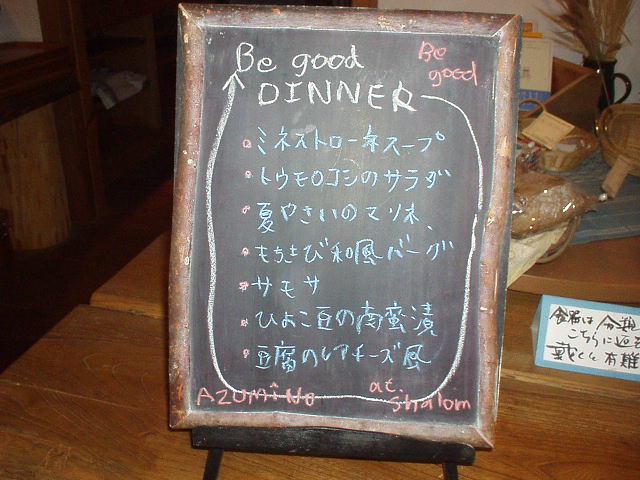 Be good
Be
good
DINNER
ミネストローネスープ
トウモロコシのサラダ
夏やさいのマリネ
もちきび和風バーグ
サモサ
ひよこ豆の南蛮漬
豆腐のレアチーズ風
AZUMINO
at.
Shalom
食器は 分類
こちらに
戴くと 有難